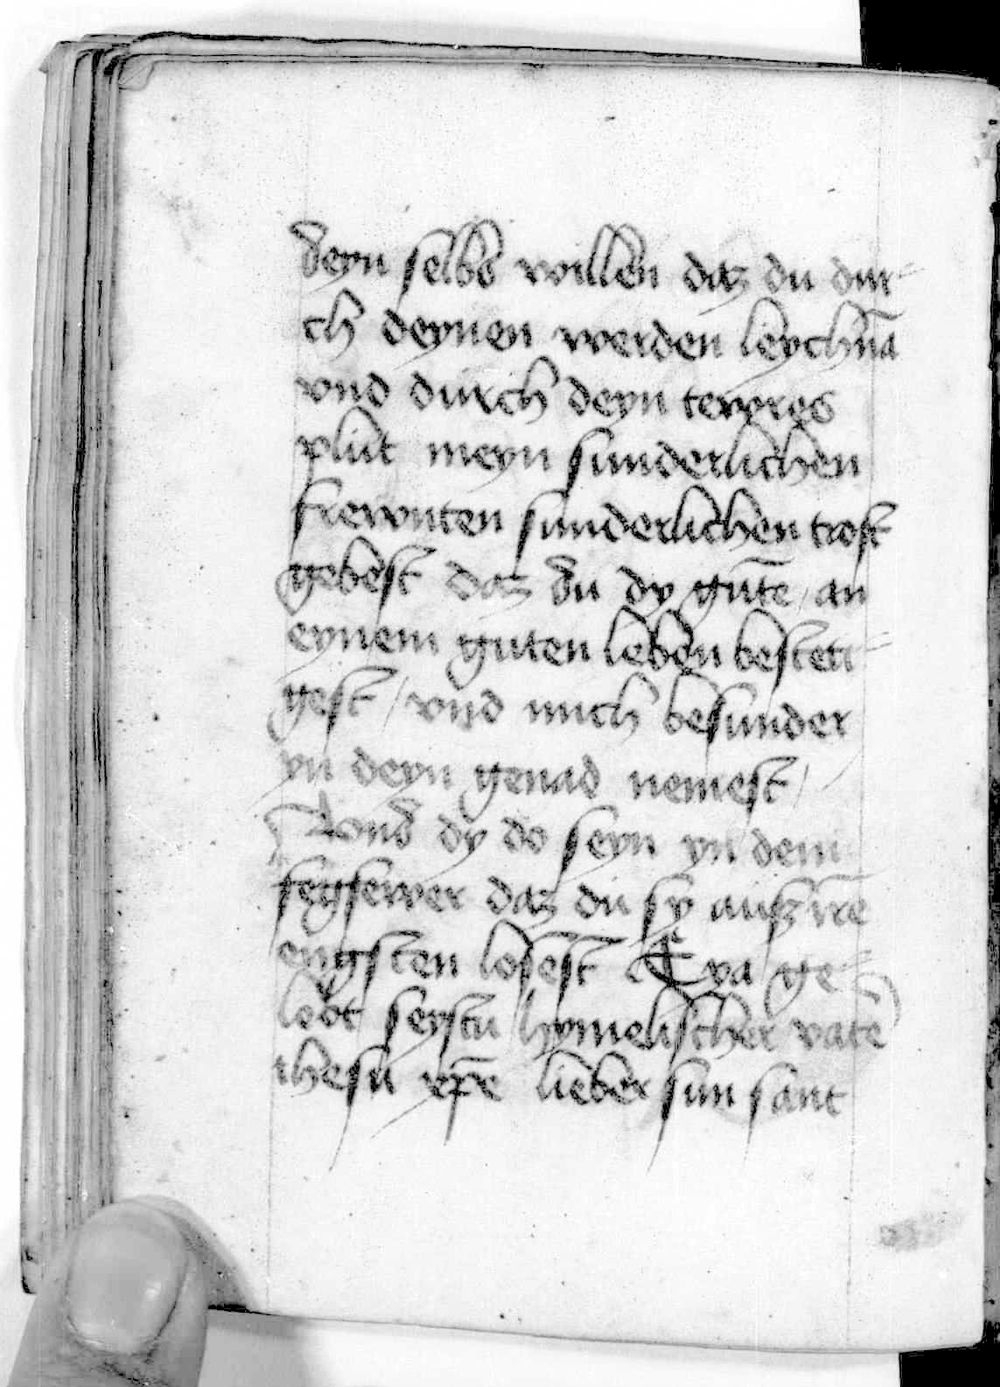 deyn selbs willen daz du dur-
ch deynen werden leychnā
vnd durch deyn tewres
plut meyn sunderlichen
frewnten sunderlichen trost
gebest daz du dy gutē / an
eynem guten leben besteti-
gest / vnd mich besunder
yn deyn genad nemest /
Vnd dy do seyn yn dem
fegfewer daz du sy ausz irē
engsten losest Eya ge-
lobt seystu hymelischer vatē
ihesu xpē lieber sun sant